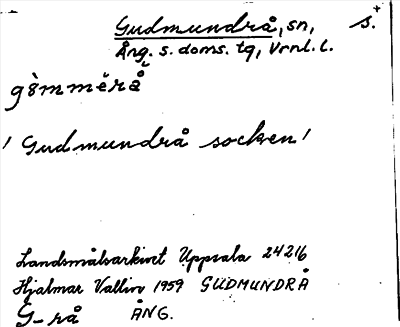 Gudmundrå, sn, s.
Ång. s. doms. tg, Vrnl. l.
gömmĕrå̆
' Gudmundrå socken '
Landsmålsarkivet Uppsala 24216
Hjalmar Vallin 1959 GUDMUNDRÅ
G-rå ÅNG.